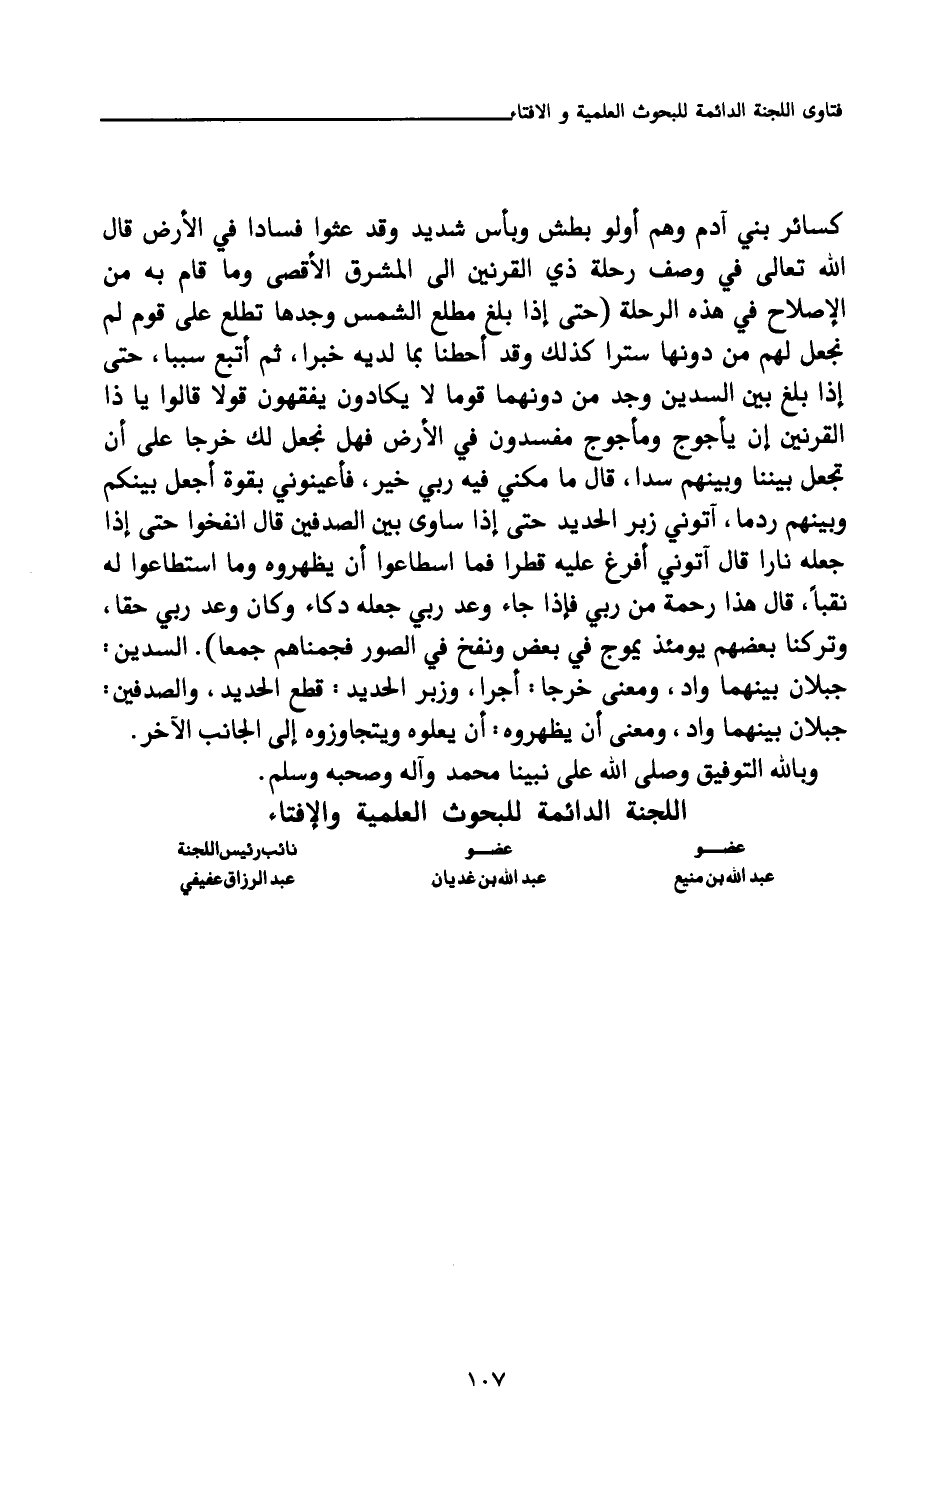 فتاوى اللجنة الدائمة للبحوث العلمية و الافتاء
كسائر بني آدم وهم أولو بطش وبأس شديد وقد عثوا فسادا في الأرض قال
الله تعالى في وصف رحلة ذي القرنين الى المشرق الأقصى وما قام به من
الإصلاح في هذه الرحلة (حتى إذا بلغ مطلع الشمس وجدها تطلع على قوم لم
نجعل لهم من دونها سترا كذلك وقد أحطنا بما لديه خبرا، ثم أتبع سببا، حتى
إذا بلغ بين السدين وجد من دونهما قوما لا يكادون يفقهون قولا قالوا يا ذا
القرنين إن يأجوج ومأجوج مفسدون في الأرض فهل نجعل لك خرجا على أن
تجعل بيننا وبينهم سدا، قال ما مكني فيه ربي خير، فأعينوني بقوة أجعل بينكم
وبينهم ردما، آتوني زبر الحديد حتى إذا ساوى بين الصدفين قال انفخوا حتى إذا
جعله نارا قال آتوني أفرغ عليه قطرا فما اسطاعوا أن يظهروه وما استطاعوا له
نقباً، قال هذا رحمة من ربي فإذا جاء وعد ربي جعله دكاء وكان وعد ربي حقا،
وتركنا بعضهم يومئذ يموج في بعض ونفخ في الصور فجمناهم جمعا). السدين:
جبلان بينهما واد، ومعنى خرجا: أجرا، وزبر الحديد: قطع الحديد، والصدفين:
جبلان بينهما واد، ومعنى أن يظهروه: أن يعلوه ويتجاوزوه إلى الجانب الآخر.
وبالله التوفيق وصلى الله على نبينا محمد وآله وصحبه وسلم.
اللجنة الدائمة للبحوث العلمية والإفتاء
عضـــو عضـــو نائب رئيس اللجنة
عبد الله بن منيع عبد الله بن غديان عبد الرزاق عفيفي
١٠٧